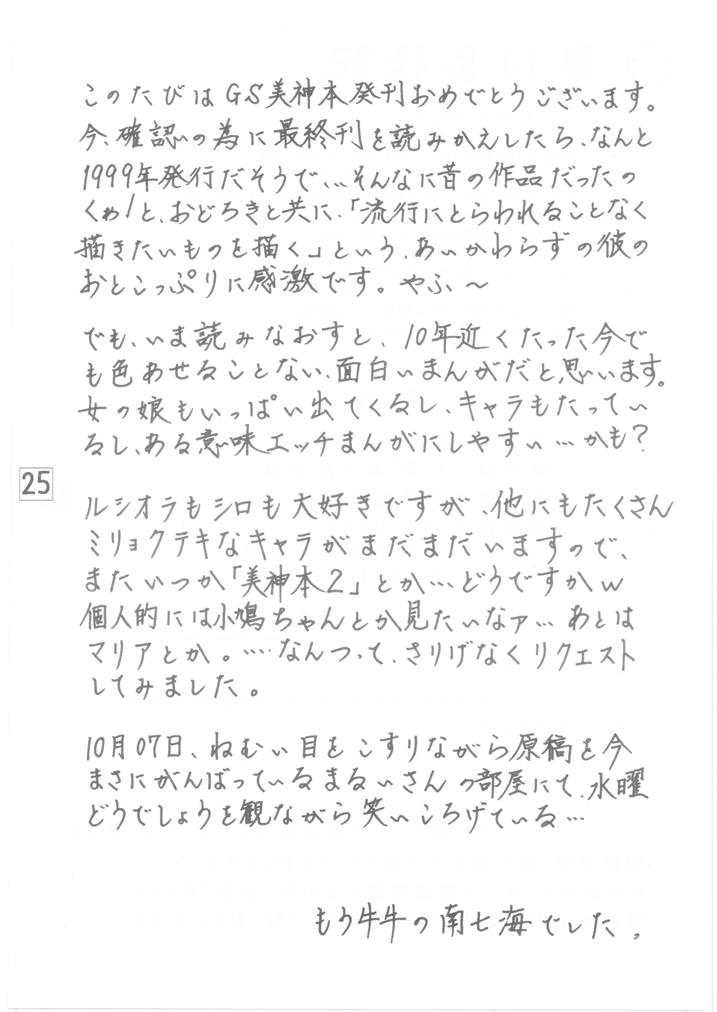 このたびはGS美神本発刊おめでとうございます。
今、確認の為に最終刊を読みかえしたら、なんと
1999年発行だそうで、、、そんなに昔の作品だったの
くゎ!と、おどろきと共に、「流行にとらわれることなく
描きたいものを描く」という、あいかわらずの彼の
おとこっぷりに感激です。やふ〜
でも、いま読みなおすと、10年近くたった今で
も色あせることない、面白いまんがだと思います。
女の娘もいっぱい出てくるし、キャラもたってい
るし、ある意味エッチまんがにしやすい…かも?
25
ルシオラもシロも大好きですが、他にもたくさん
ミリョクテキなキャラがまだまだいますので、
またいつか「美神本2」とか…どうですかw
個人的には小鳩ちゃんとか見たいなァ… あとは
マリアとか。…なんつって、さりげなくリクエスト
してみました。
10月07日、ねむい目をこすりながら原稿を今
まさにがんばっているまるいさんの部屋にて、水曜
どうでしょうを観ながら笑いころげている…
もう牛牛の南七海でした。